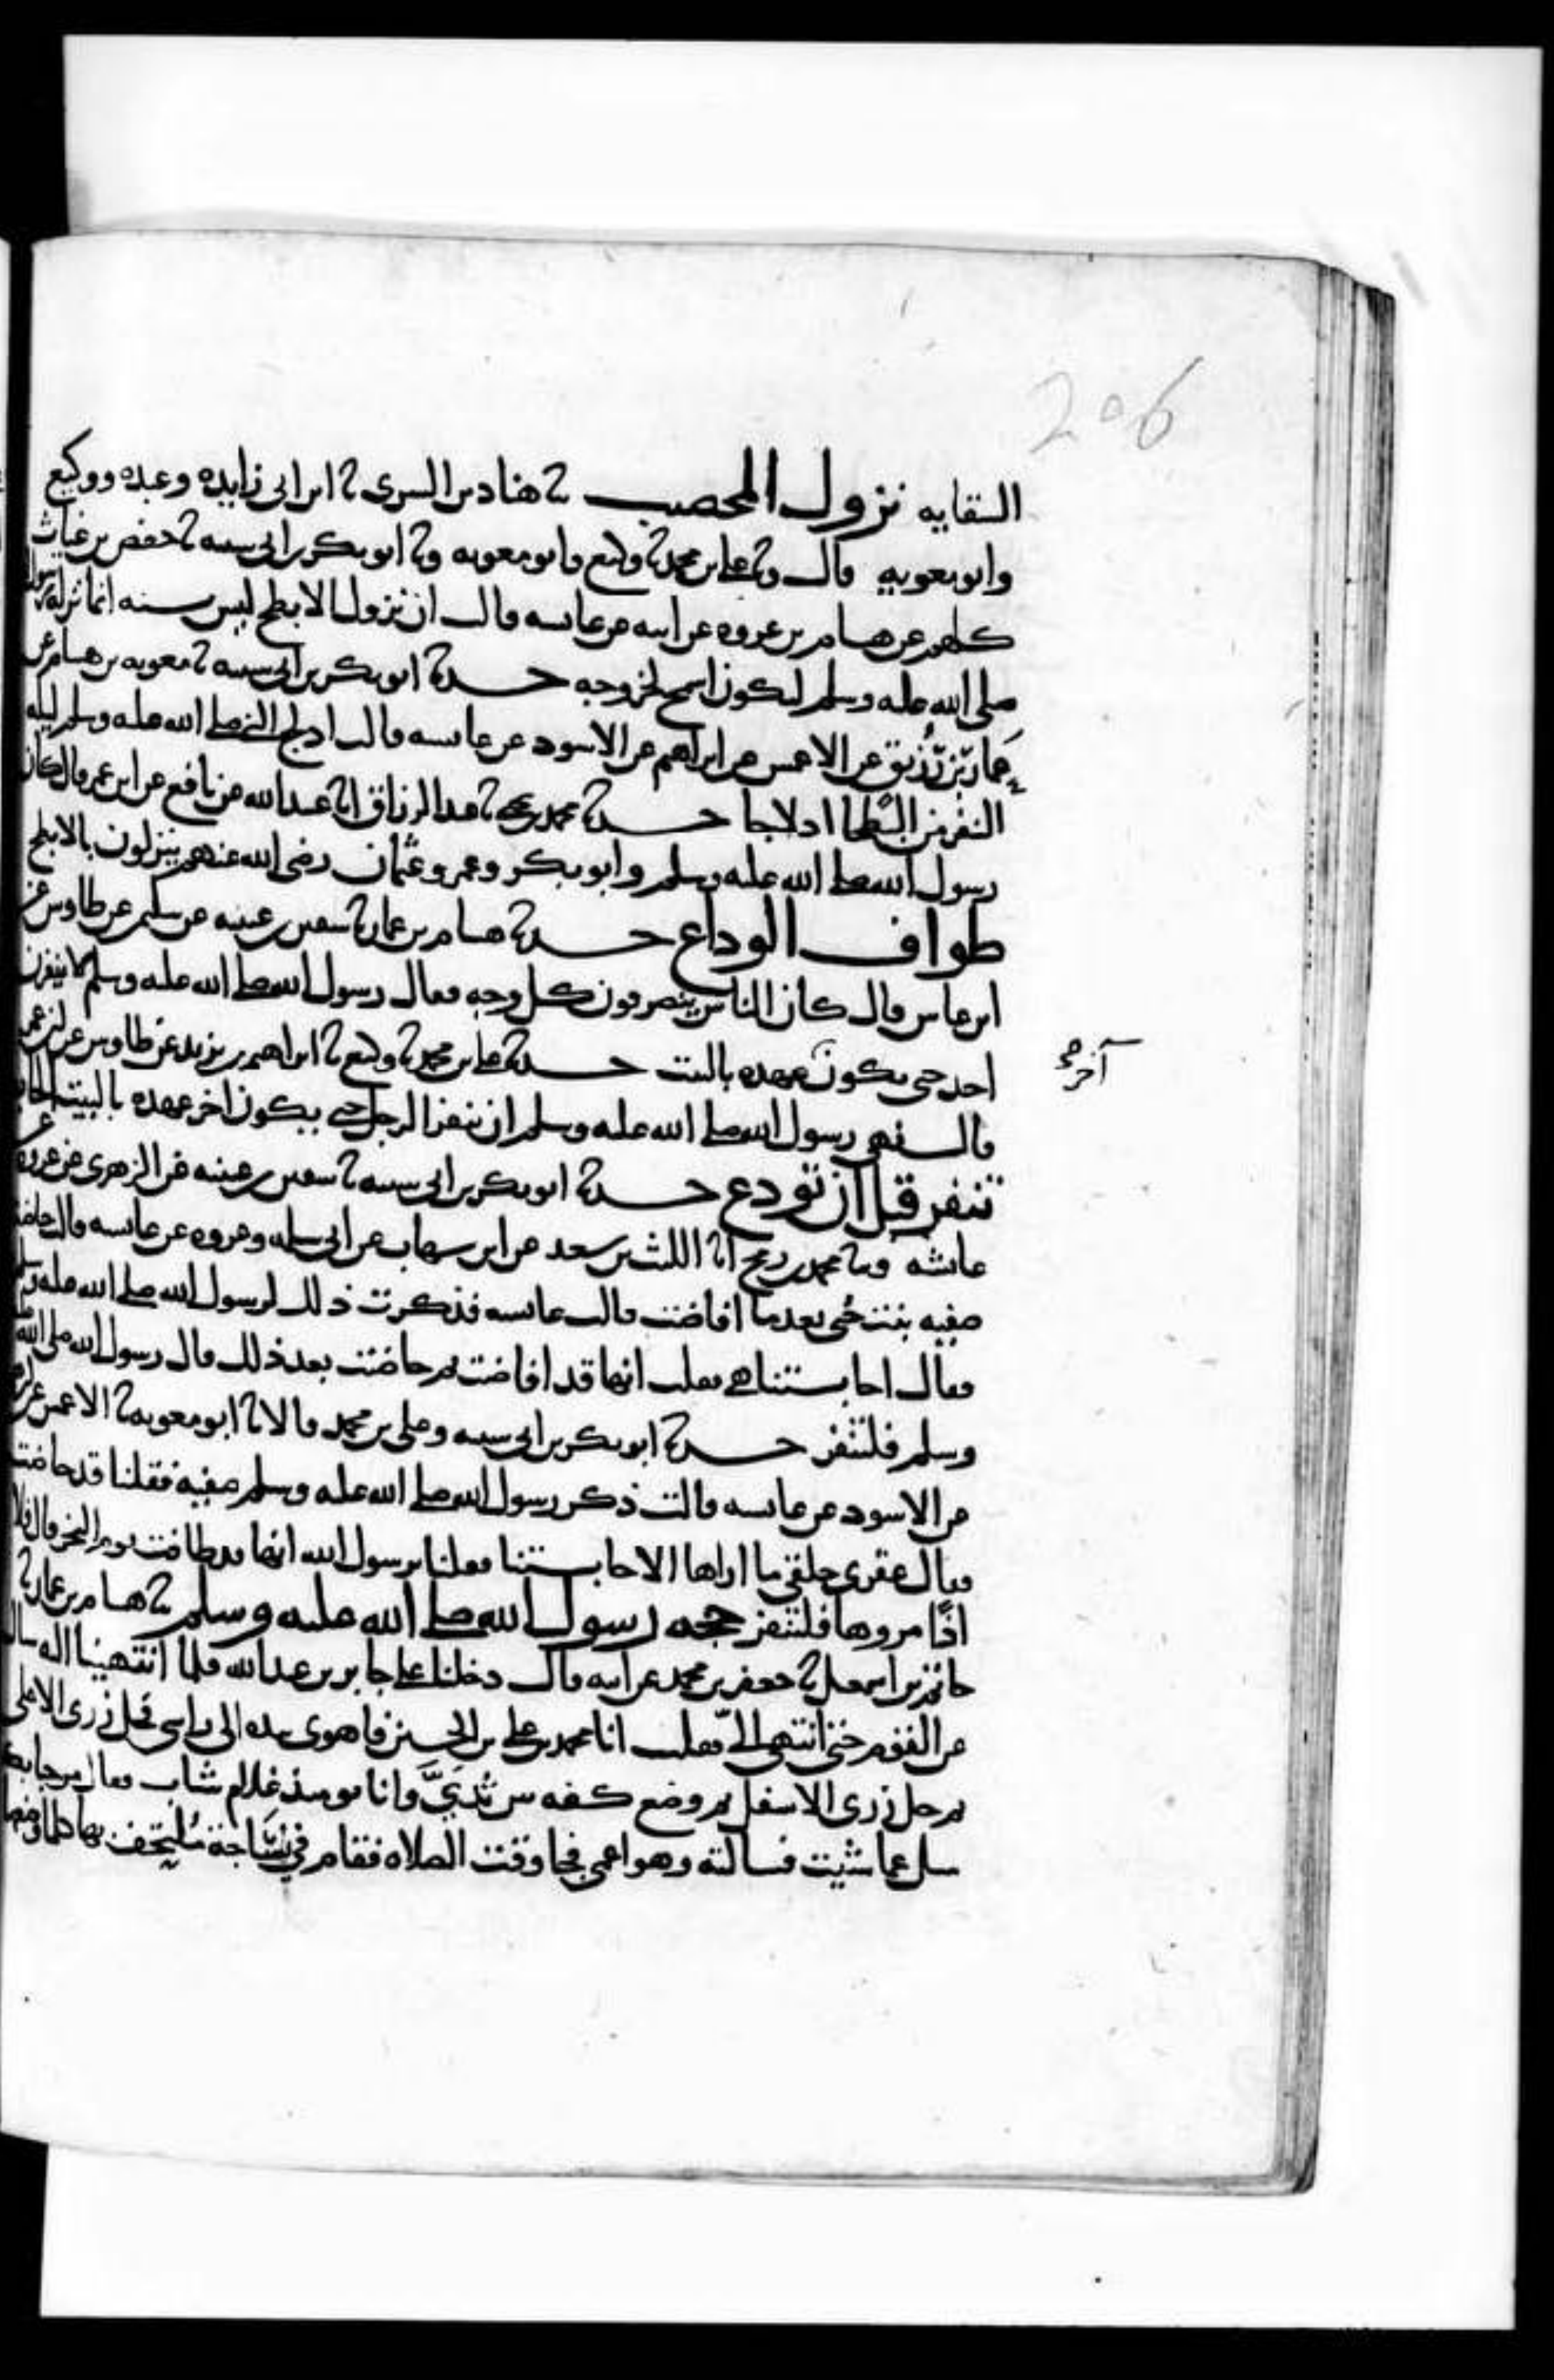 206
السقايه نزول المحصب ثنا هناد بن السرى ثنا ابن ابى زايده وعبده ووكيع
وابو معويه قال وثنا على بن محمد ثنا وكيع وابو معويه وثنا ابو بكر بن ابى شيبه ثنا حفص بن غياث
كلهم عن هشام بن عروه عن ابيه عن عايشه قالت ان نزول الابطح ليس بسنه انما نزله رسول الله
صلى الله عليه وسلم ليكون اسمح لخروجه حدثنا ابو بكر بن ابى شيبه ثنا معويه بن هشام عن
عمار بن رزيق عن الاعمش عن ابراهيم عن الاسود عن عايشه قالت ادلج النبى صلى الله عليه وسلم ليله
النفر من البطحا ادلاجا حدثنا محمد بن يحيى ثنا عبد الرزاق انا عبد الله عن نافع عن ابن عمر قال كان
رسول الله صلى الله عليه وسلم وابو بكر وعمر وعثمان رضى الله عنهم ينزلون بالابطح
طواف الوداع حدثنا هشام بن عمار ثنا سفين بن عيينه عن سليمن عن طاوس عن
ابن عباس قال كان الناس ينصرفون كل وجه فقال رسول الله صلى الله عليه وسلم لا ينفرن
احد حتى يكون عهده بالبيت حدثنا على بن محمد ثنا وكيع ثنا ابراهيم بن يزيد عن طاوس عن ابن عمر
آخر صح
قال نهى رسول الله صلى الله عليه وسلم ان ينفر الرجل حتى يكون اخر عهده بالبيت الحايض
تنفر قبل ان تودع حدثنا ابو بكر بن ابى شيبه ثنا سفين بن عيينه عن الزهرى عن عروه عن
عائشه وثنا محمد بن رمح انا الليث بن سعد عن ابن شهاب عن ابى سلمه وعروه عن عايشه قالت حاضت
صفيه بنت حيى بعد ما افاضت قالت عايشه فذكرت ذلك لرسول الله صلى الله عليه وسلم
فقال احابستنا هى فقلت انها قد افاضت ثم حاضت بعد ذلك قال رسول الله صلى الله عليه
وسلم فلتنفر حدثنا ابو بكر بن ابى شيبه وعلى بن محمد قالا ثنا ابو معويه ثنا الاعمش عن ابرهيم
عن الاسود عن عايشه قالت ذكر رسول الله صلى الله عليه وسلم صفيه فقلنا قد حاضت
فقال عقرى حلقى ما اراها الا حابستنا فقلنا يرسول الله انها قد طافت يوم النحر قال فلا
اذًا مروها فلتنفر حجه رسول الله صلى الله عليه وسلم ثنا هشام بن عمار ثنا
حاتم بن اسمعيل ثنا جعفر بن محمد عن ابيه قال دخلنا على جابر بن عبد الله فلما انتهينا اليه سال
عن القوم حتى انتهى الىّ فقلت انا محمد بن على بن الحسين فاهوى بيده الى راسى فحل زرى الاعلى
ثم حل زرى الاسفل ثم وضع كفه بين ثديىّ وانا يومئذ غلام شاب فقال مرحبا بك
سل عما شئت فسالته وهو اعمى فجا وقت الصلاه فقام فى نساجة ملتحف بها كلما وضعها